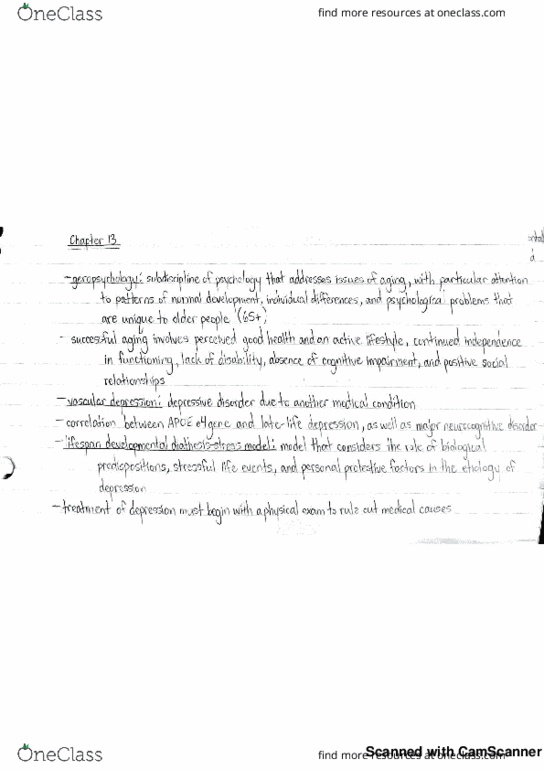 OneClass
find more resources at oneclass.com
Chapter 13
-geropsychology: subdiscipline of psychology that addresses issues of aging, with particular attention
to patterns of normal development, individual differences, and psychological problems that
are unique to older people (65+)
- successful aging involves perceived good health and an active lifestyle, continued independence
in functioning, lack of disability, absence of cognitive impairment, and positive social
relationships
-vascular depression: depressive disorder due to another medical condition
-correlation between APOE e4 gene and late-life depression, as well as major neurocognitive disorder
-lifespan developmental diathesis-stress model: model that considers the role of biological
predispositions, stressful life events, and personal protective factors in the etiology of
depression
-treatment of depression must begin with a physical exam to rule out medical causes
OneClass
find more resources at oneclass.com
Scanned with CamScanner